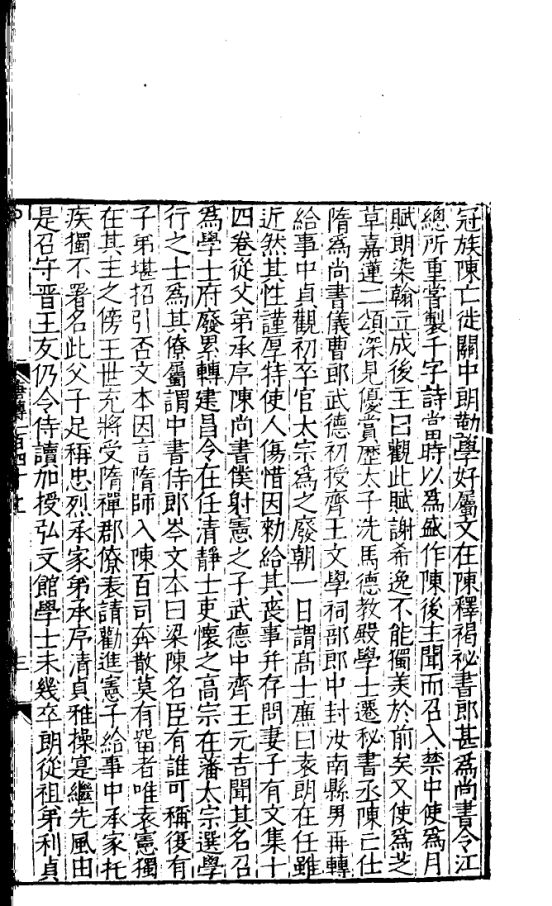 冠族陳亡徙關中朗勤學好屬文在陳釋褐祕書郎甚爲尚書令江
總所重甞製千字詩當時以爲盛作陳後主聞而召入禁中使爲月
賦朗染翰立成後主曰觀此賦謝希逸不能獨美於前矣又使爲芝
草嘉蓮二頌深見優賞歷太子洗馬德教殿學士遷秘書丞陳亡仕
隋爲尚書儀曹郎武德初授齊王文學祠部郎中封汝南縣男再轉
給事中貞觀初卒官太宗爲之廢朝一日謂髙士廉曰袁朗在任雖
近然其性謹厚特使人傷惜因勑給其喪事并存問妻子有文集十
四卷從父弟承序陳尚書僕射憲之子武德中齊王元吉聞其名召
爲學士府廢累轉建昌令在任清靜士吏懷之高宗在藩太宗選學
行之士爲其僚屬謂中書侍郎岑文本曰梁陳名臣有誰可稱復有
子弟堪招引否文本因言隋師入陳百司奔散莫有留者唯袁憲獨
在其主之傍王世充將受隋禪郡僚表請勸進憲子給事中承家托
疾獨不署名此父子足稱忠烈承家弟承序清貞雅操寔繼先風由
是召守晋王友仍令侍讀加授弘文館學士未幾卒朗從祖弟利貞
唐傳一百四十五
三